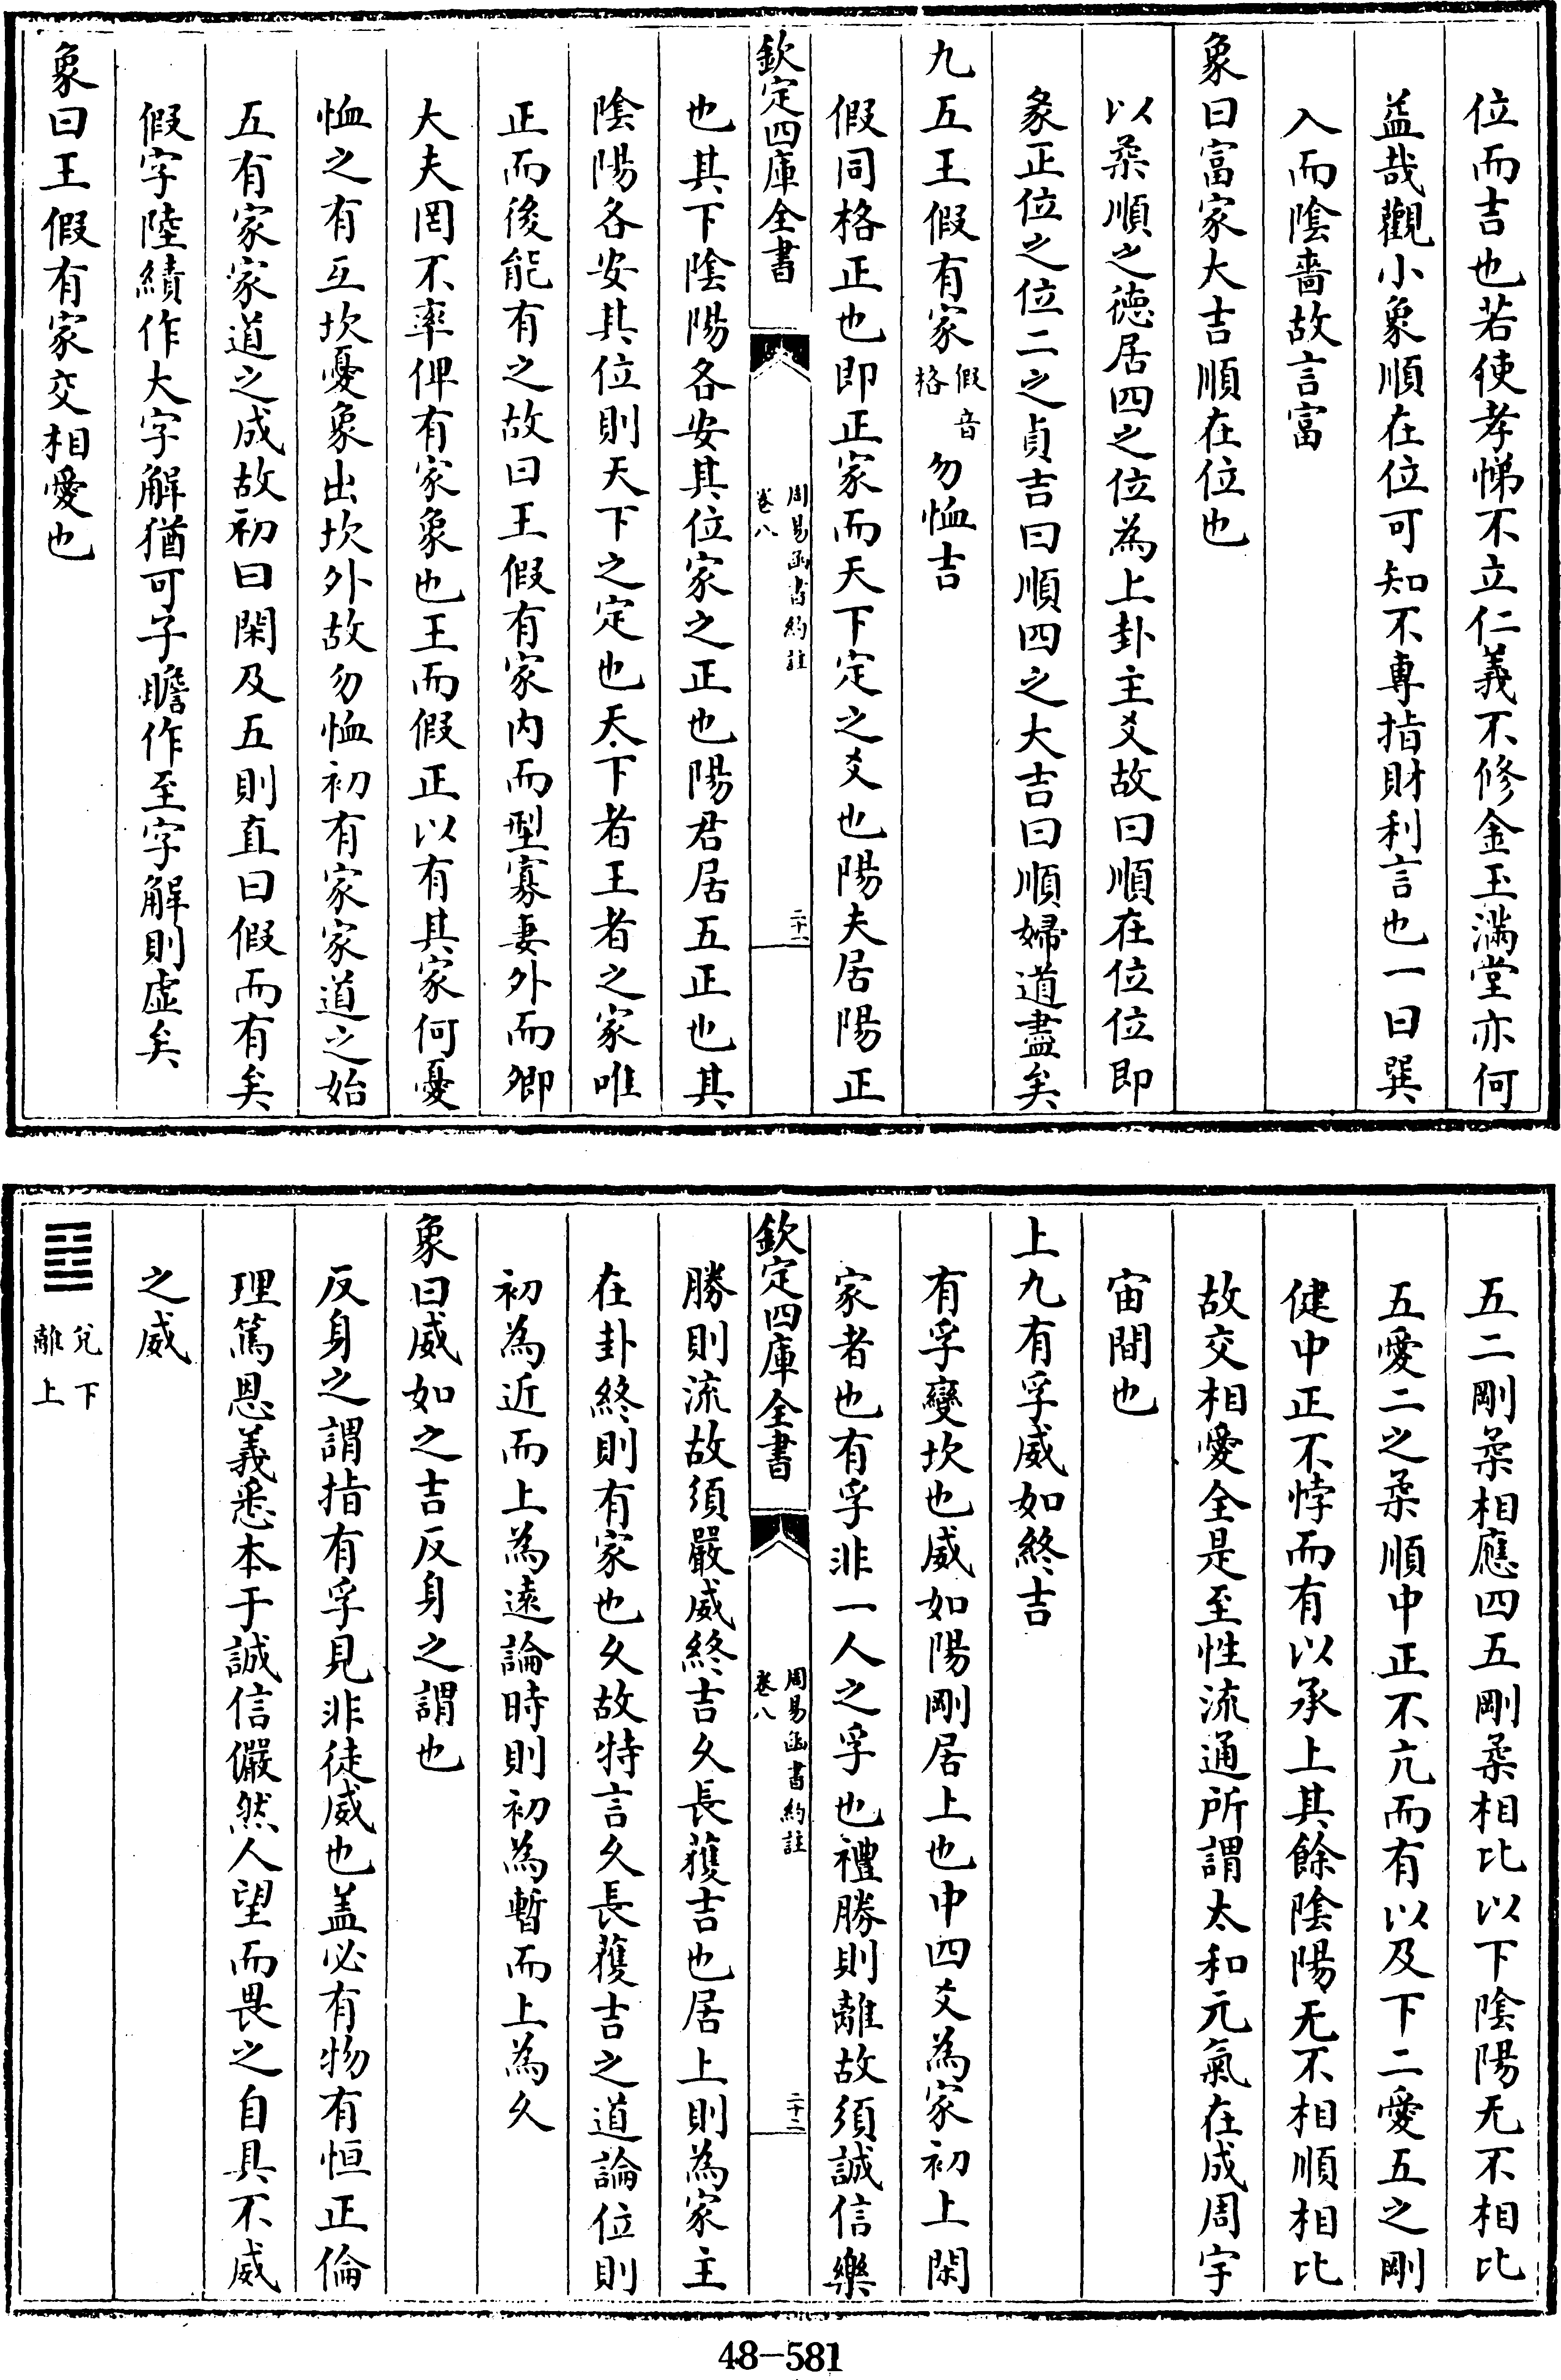 位而吉也若使孝悌不立仁義不修金玉滿堂亦何
益哉觀小象順在位可知不專指財利言也一曰巽
入而陰嗇故言富
象曰富家大吉順在位也
以柔順之德居四之位為上卦主爻故曰順在位位即
彖正位之位二之貞吉曰順四之大吉曰順婦道盡矣
九五王假有家假音格勿恤吉
假同格正也即正家而天下定之爻也陽夫居陽正
欽定四庫全書
周易函書約註
卷八
二十一
也其下陰陽各安其位家之正也陽君居五正也其
陰陽各安其位則天下之定也天下者王者之家唯
正而後能有之故曰王假有家內而型寡妻外而卿
大夫罔不率俾有家象也王而假正以有其家何憂
恤之有互坎憂象出坎外故勿恤初有家家道之始
五有家家道之成故初曰閑及五則直曰假而有矣
假字陸績作大字解猶可子瞻作至字解則虛矣
象曰王假有家交相愛也
五二剛柔相應四五剛柔相比以下陰陽无不相比
五愛二之柔順中正不亢而有以及下二愛五之剛
健中正不悖而有以承上其餘陰陽无不相順相比
故交相愛全是至性流通所謂太和元氣在成周宇
宙間也
上九有孚威如終吉
有孚變坎也威如陽剛居上也中四爻為家初上閑
家者也有孚非一人之孚也禮勝則離故須誠信樂
欽定四庫全書
周易函書約註
卷八
二十二
勝則流故須嚴威終吉久長獲吉也居上則為家主
在卦終則有家也久故特言久長獲吉之道論位則
初為近而上為遠論時則初為暫而上為久
象曰威如之吉反身之謂也
反身之謂指有孚見非徒威也盖必有物有恒正倫
理篤恩義悉本于誠信儼然人望而畏之自具不威
之威
䷥兌下離上
48-581